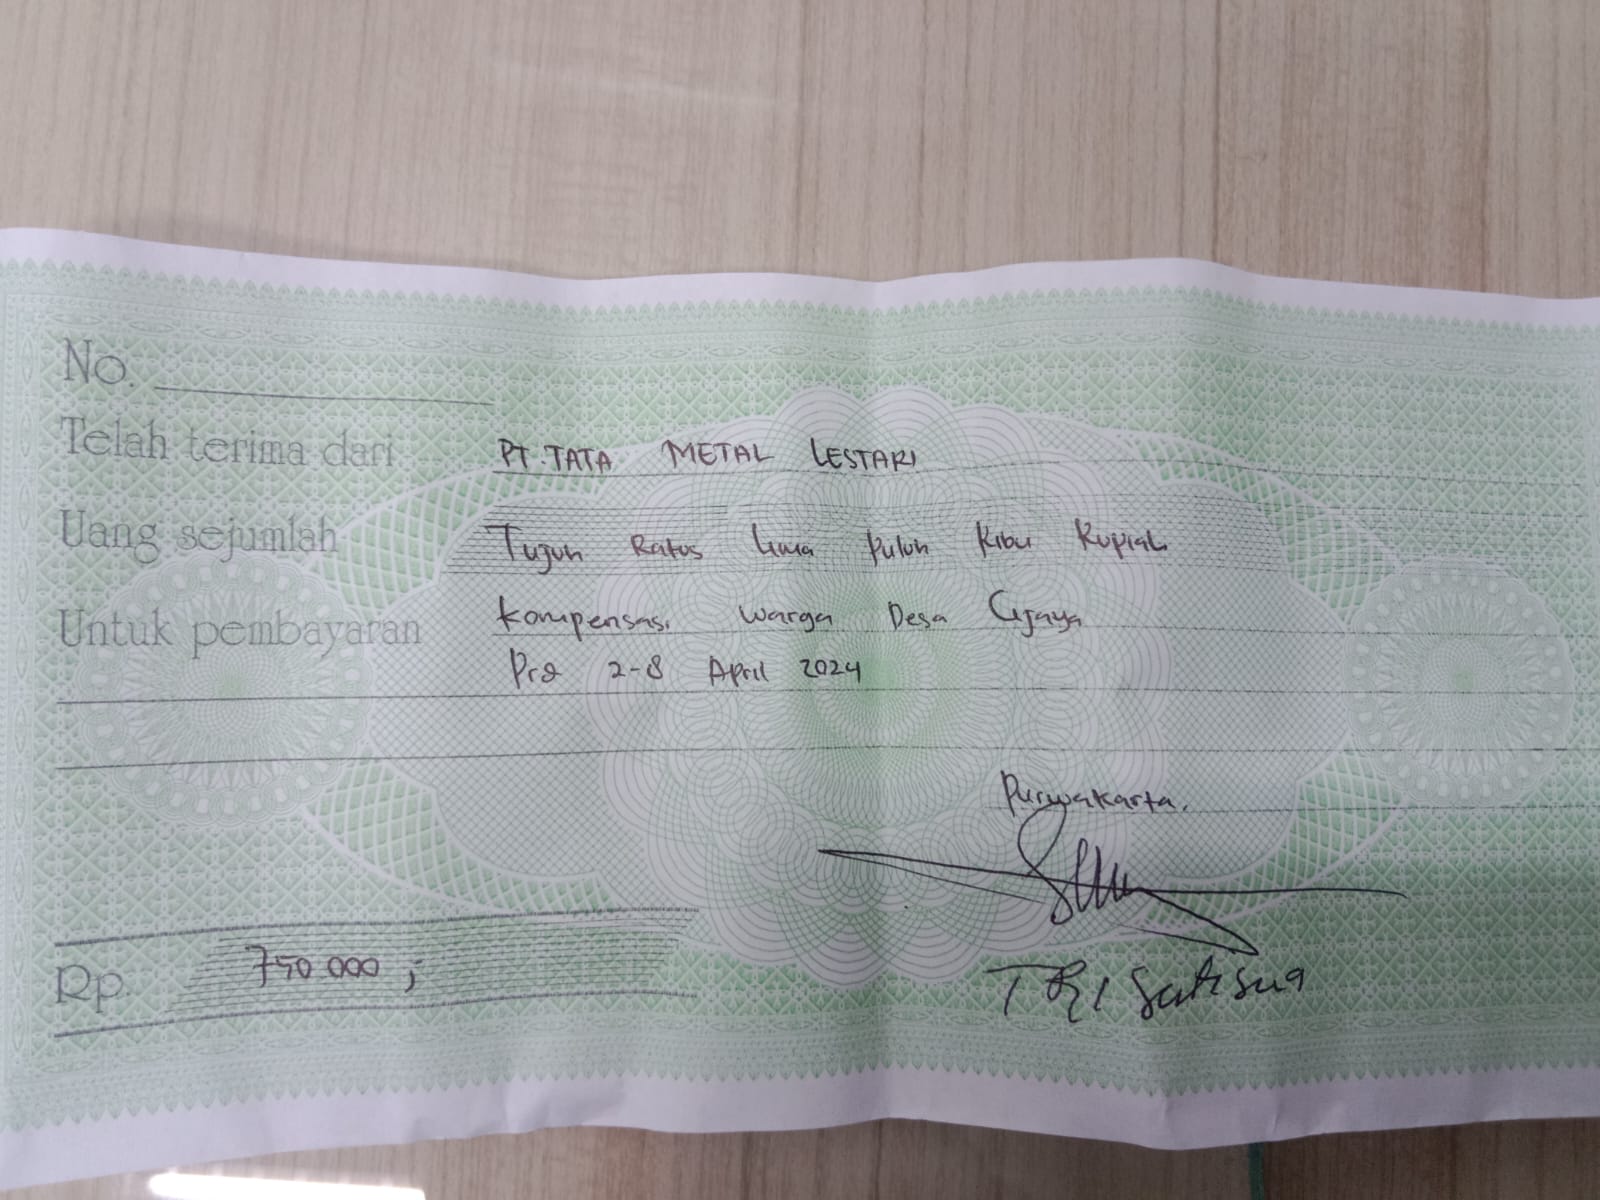 No.
Telah terima dari PT. TATA METAL LESTARI
Uang sejumlah Tujuh Ratus Lima Puluh Ribu Rupiah
Untuk pembayaran Kompensasi Warga Desa Cijaya
Prd 2-8 April 2024
Purwakarta,
Rp. 750 000 ,-
TRI Sutisna